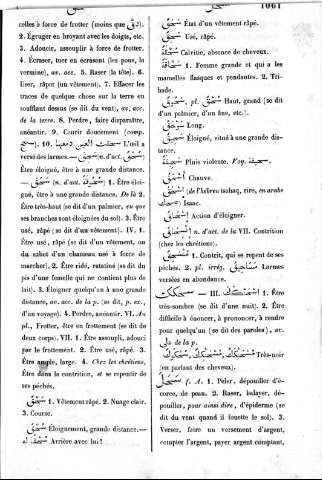 1061
celles à force de frotter (moins que دقّ).
2. Égruger en broyant avec les doigts, etc.
3. Adoucir, assouplir à force de frotter.
4. Écraser, tuer en écrasant (les poux, la
vermine), av. acc. 5. Raser (la tête). 6.
User, râper (un vêtement). 7. Effacer les
traces de quelque chose sur la terre en
soufflant dessus (se dit du vent), av. acc.
de la terre. 8. Perdre, faire disparaître,
anéantir. 9. Courir doucement (comp.
10. سحقت العين دمعها L'œil a
versé des larmes — سحق (n. d'act. سحق)
Être éloigné, être à une grande distance.
— سحق (n. d'act. سحوقة) 1. Être éloi-
gné, être à une grande distance. De là 2.
Être très-haut (se dit d'un palmier, en que
ses branches sont éloignées du sol). 3. Être
usé, râpé (se dit d'un vêtement). IV. 1.
Être usé, râpé (se dit d'un vêtement, ou
du sabot d'un chameau usé à force de
marcher). 2. Être ridé, ratatiné (se dit du
pis d'une femelle qui ne contient plus de
lait). 3. Éloigner quelqu'un à une grande
distance, av. acc. de la p. (se dit, p. ex.,
d'un voyage). 4. Perdre, anéantir. VI. Au
pl., Frotter, être en frottement (se dit de
deux corps). VII. 1. Être assoupli, adouci
par le frottement. 2. Être usé, râpé. 3.
Être ample, large. 4. Chez les chrétiens,
Être dans la contrition, et se repentir de
ses péchés.
سحق 1. Vêtement râpé. 2. Nuage clair.
3. Course.
سحق Éloignement, grande distance.—
سحقا له Arrière avec lui!
سحق État d'un vêtement râpé.
سحق Usé, râpé.
Calvitie, absence de cheveux.
سحاقة 1. Femme grande et qui a les
mamelles flasques et pendantes. 2. Tri-
bade.
سحوق, pl. سحق Haut, grand (se dit
d'un palmier, d'un âne, etc.).
سوحق Long.
سحيق Éloigné, situé à une grande dis-
tance.
سحيقة Pluie violente. Voy. سحيفة
Chauve.
اسحاق (de l'hébreu isahaq, rire, en arabe
ضحك) Isaac.
اسحاق Action d'éloigner.
انسحاق n. d'act. de la VII. Contrition
(chez les chrétiens).
منسحق 1. Contrit, qui se repent de ses
péchés. 2. pl. irrég. مساحيق Larmes
versées en abondance.
سحك — III. اسحنكك 1. Être
très-sombre (se dit d'une nuit). 2. Être
difficile à énoncer, à prononcer, à rendre
pour quelqu'un (se dit des paroles), av.
على de la p.
Très-noir
(en parlant des cheveux).
سحل f. A. 1. Peler, dépouiller d'é-
corce, de peau. 2. Raser, balayer, dé-
pouiller, pour ainsi dire, d'épiderme (se dit
du vent quand il fouette le sol). 3.
Verser, faire un versement d'argent,
compter l'argent, payer argent comptant,